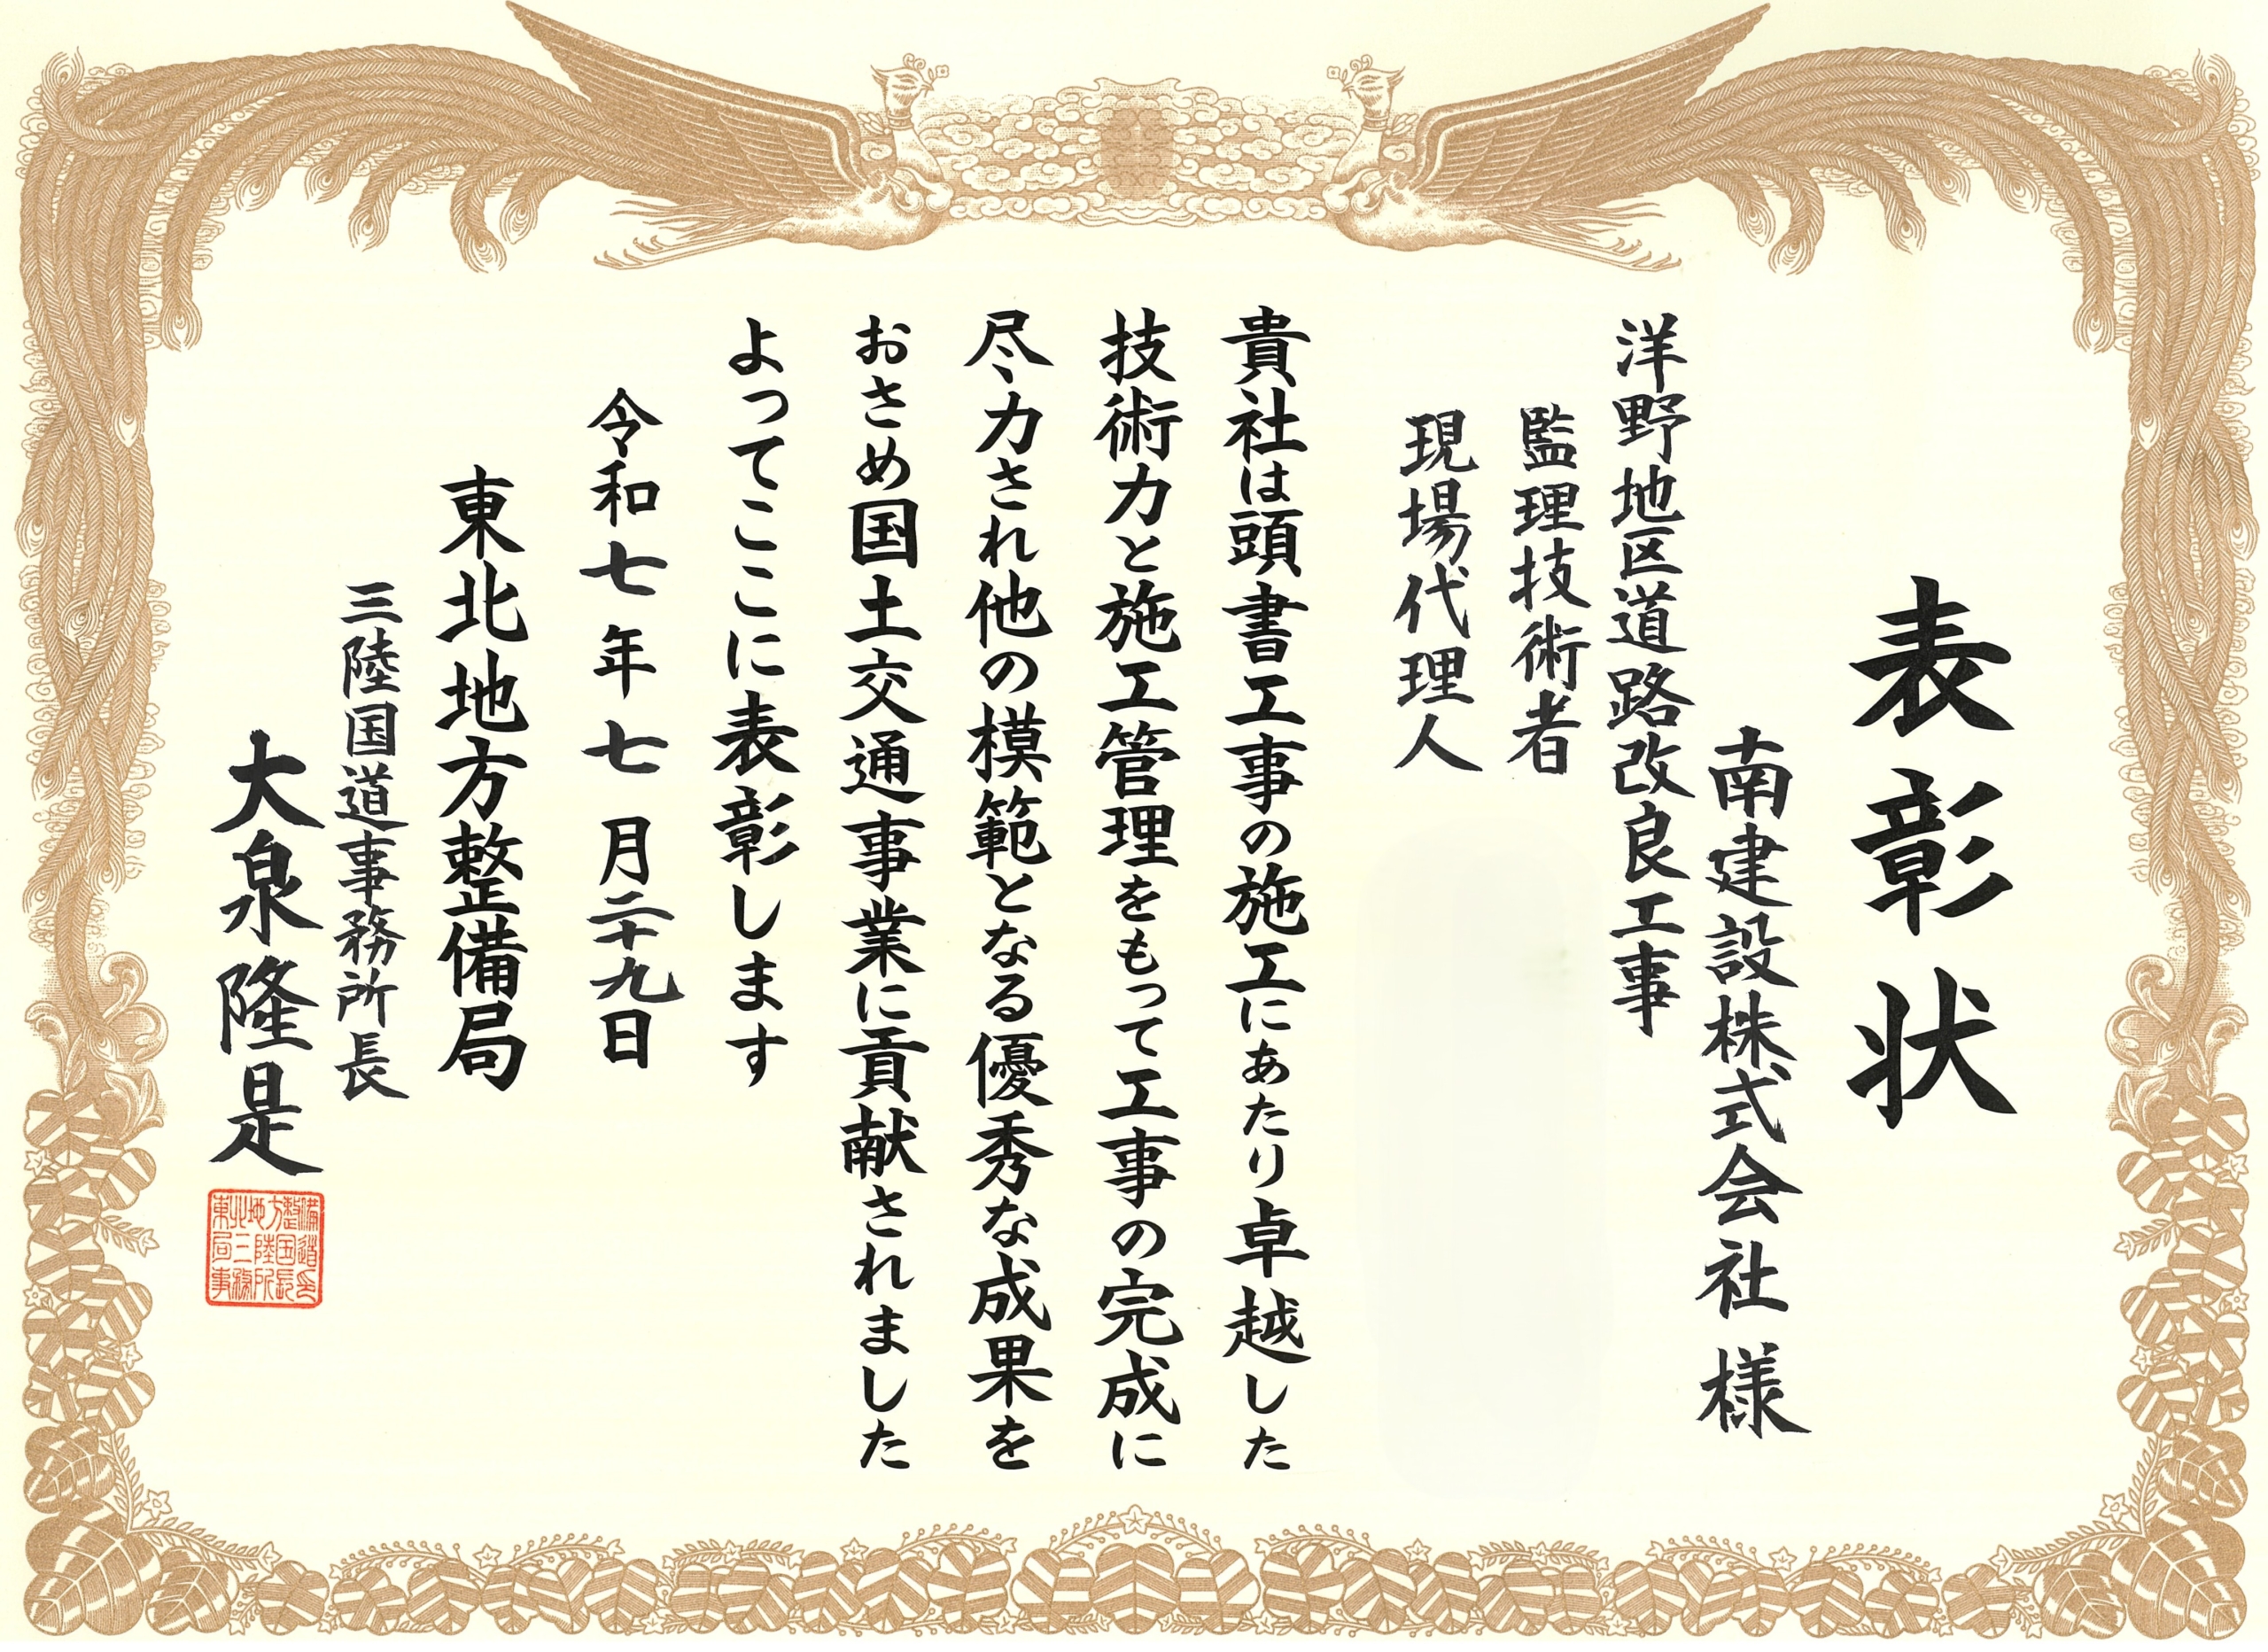 表彰状
南建設株式会社 様
洋野地区道路改良工事
監理技術者
現場代理人
貴社は頭書工事の施工にあたり卓越した
技術力と施工管理をもって工事の完成に
尽力され他の模範となる優秀な成果を
おさめ国土交通事業に貢献されました
よってここに表彰します
令和七年七月二十九日
東北地方整備局
三陸国道事務所長
大泉隆是
東北地方整備
局三陸国道
事務所長印